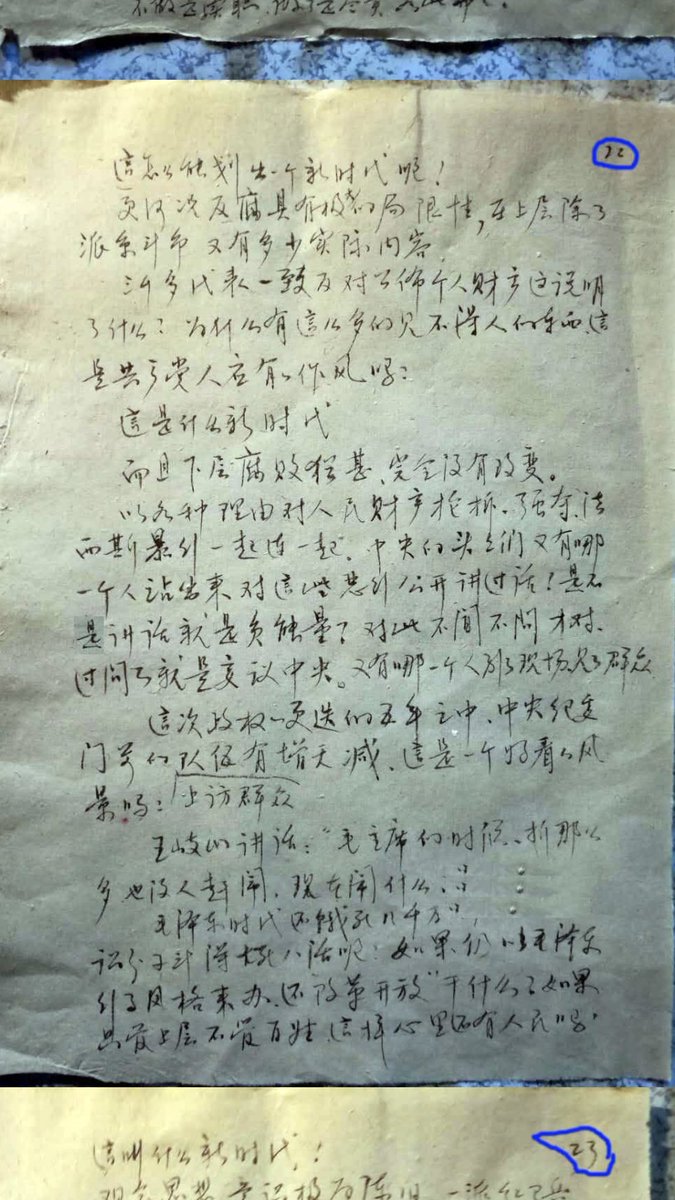 22
這怎么能划出一个新时代呢!
更何况反腐具有极大的局限性,在上层除了
派系斗争又有多少实际内容
三千多代表一致反对公佈个人财产这说明
了什么?为什么有這么多的见不得人的东西,這
是共产党人应有的作风吗?
這是什么新时代
而且下层腐败猶甚,完全没有改变。
以各种理由对人民财产抢拆、强夺、法
西斯暴行一起连一起,中央的头头们又有哪
一个人站出来对這些恶行公开讲过话!是不
是讲话就是负能量了对此不闻不问才对、
过问了就是妄议中央。又有哪一个人到了现场见了群众
這次政权更迭的五年之中,中央纪委
门前的队伍有增无减,這是一个好看的风
景吗?上访群众
王岐山讲话:"毛主席的时候、拆那么
多也没人赶闹,现在闹什么?"
毛泽东时代还饿死几千万",
识分子斗得七死八活呢?如果仍以毛泽东
的风格来办,还改革开放"干什么?如果
只管上层不管百姓,這样心里还有人民吗?
23
這叫什么新时代!